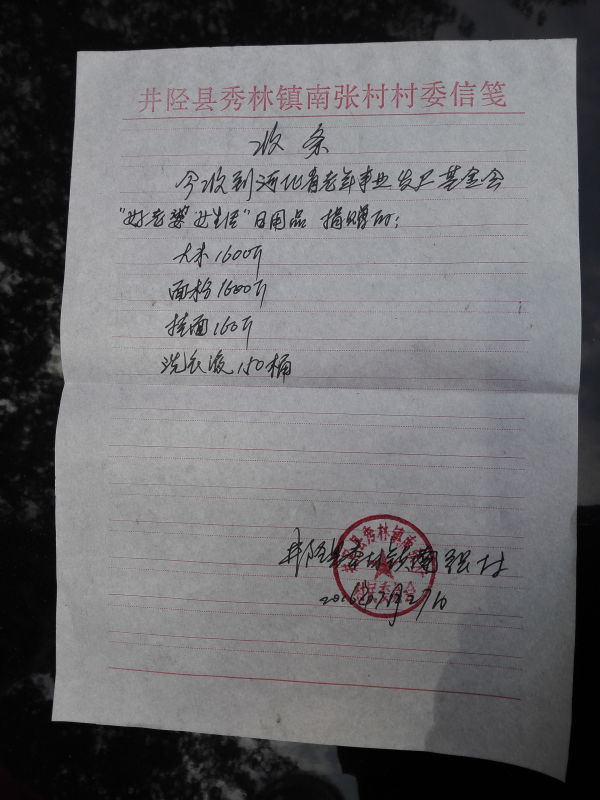 井陉县秀林镇南张村村委信笺
收条
今收到河北省老年事业发展基金会
"好老婆 女生活"日用品 捐赠的:
大米1600斤
面粉1600斤
挂面160斤
洗衣液150桶
井陉县秀林镇南张村
2016年7月27日
井陉县秀林镇南